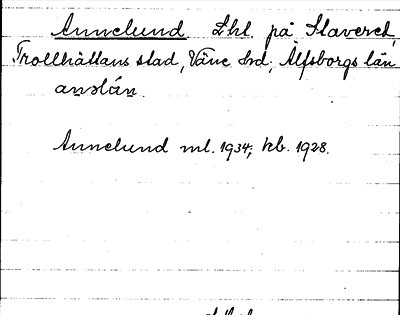 Annelund Lht. på Slaveret,
Trollhättans stad, Väne hd, Älfsborgs län
Annelund ml. 1934, kb. 1928.